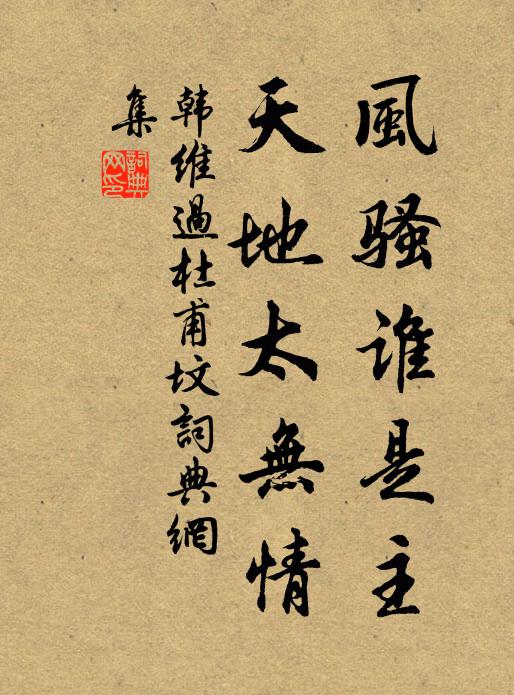 風騷誰是主
天地太無情
韩維過杜甫坟詞典網
集
詞典
网印